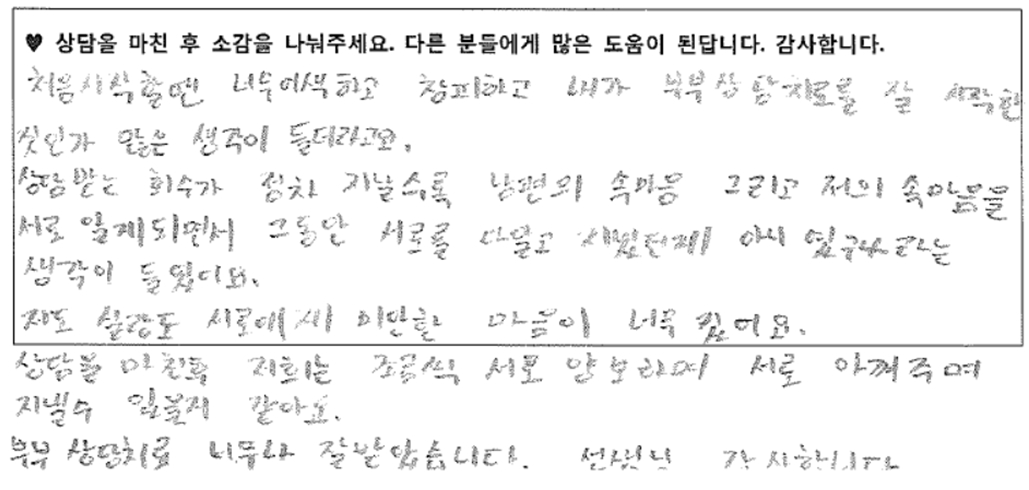 ♥ 상담을 마친 후 소감을 나눠주세요. 다른 분들에게 많은 도움이 된답니다. 감사합니다.
처음시작할땐 너무어색하고 창피하고 내가 부부상담치료를 잘 시작한
것인가 많은 생각이 들더라고요.
상담받는 회수가 점차 지날수록 남편의 속마음 그리고 저의 속마음을
서로 알게되면서 그동안 서로를 아니
생각이 들었어요.
저도 신랑도 서로에게 미안한 마음이 너무 컸어요.
상담을 마친후 저희는 조금씩 서로 양보하며 서로 아껴주며
지낼수 있을거 같아요.
부부 상담치료 너무나 잘받았습니다. 선생님 감사합니다